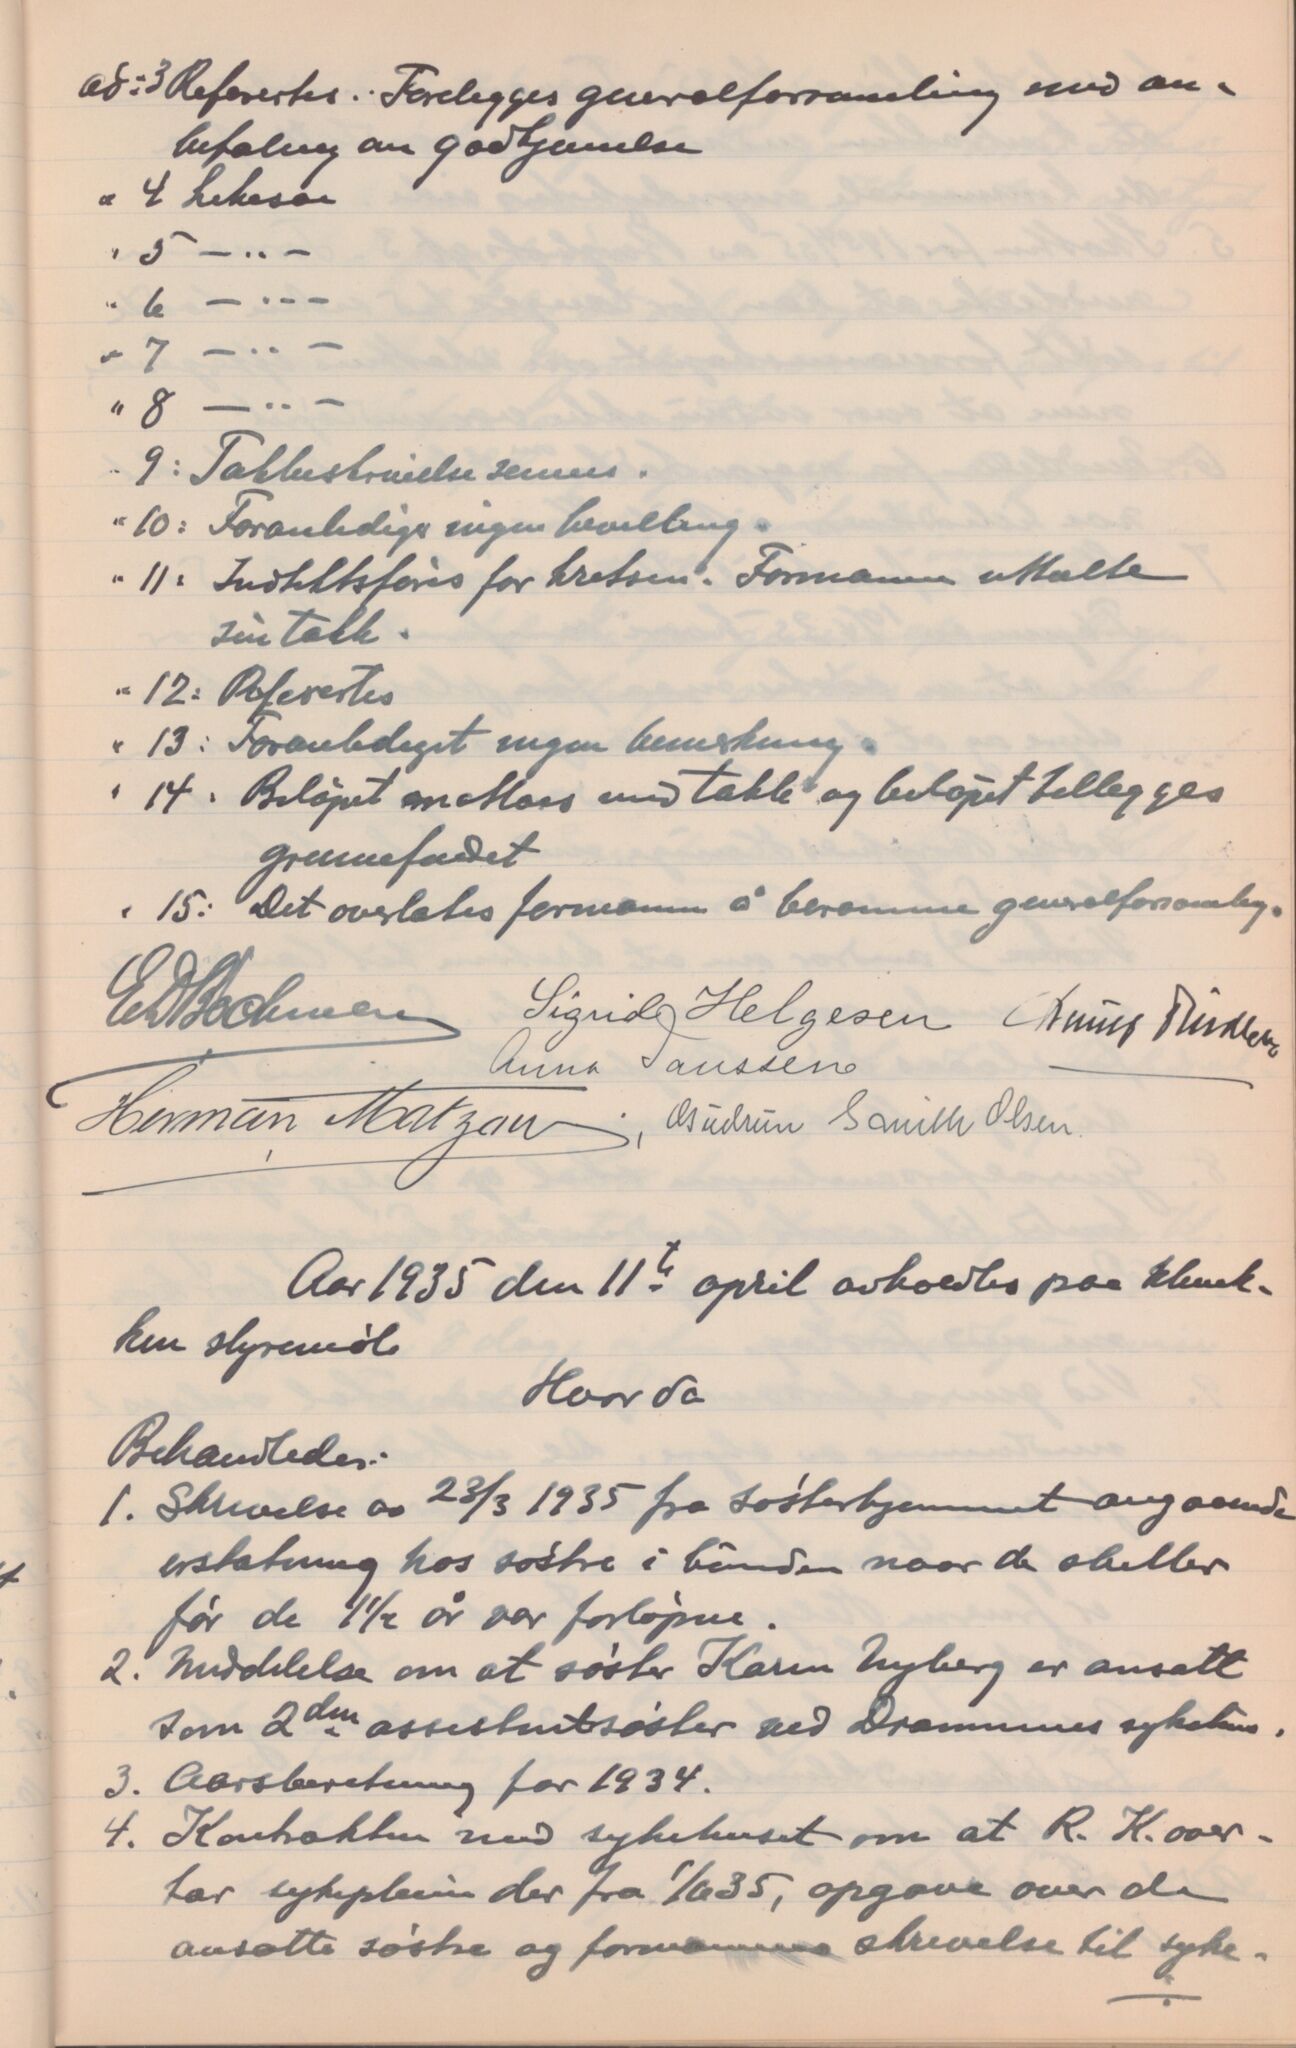 ad:3 Refertes. Forelegges generalforsamling med an-
befaling om godkjennelse
" 4 Likesaa
" 5 — ·· —
" 6 — ·· —
" 7 — ·· —
" 8 — ·· —
" 9: Takkeskrivelse sennes.
" 10: Foranlediges ingen bevilling.
" 11: Indtektsføres for kretsen. Formannen uttalte
sin takk.
" 12: Refertes
" 13: Foranlediget ingen bemerkning.
" 14. Beløpet mottass med takk og beløpet tillegges
grunnfondet
" 15: Det overlates formannen å beramme generalforsamling.
Sigrid Helgesen
Anna Janssen
Herman Matzow, Gudrun Smith Olsen.
Aar 1935 den 11te april avholdtes paa klinik-
ken styremøte
Hvor da
Behandledes:
1. Skrivelse av 23/3 1935 fra søsterhjemmet angaaende
erstatning hos søstre i bunden naar de slutter
før de 1½ år var forløpne.
2. Meddelelse om at søster Karen Nyberg er ansatt
som 2den assistentsøster ved Drammens sykehus.
3. Aarsberetning for 1934.
4. Kontrakten med sykehuset om at R. K. over-
tar sykepleien der fra 1/6 35, opgave over de
ansatte søstre og formannens skrivelse til syke-